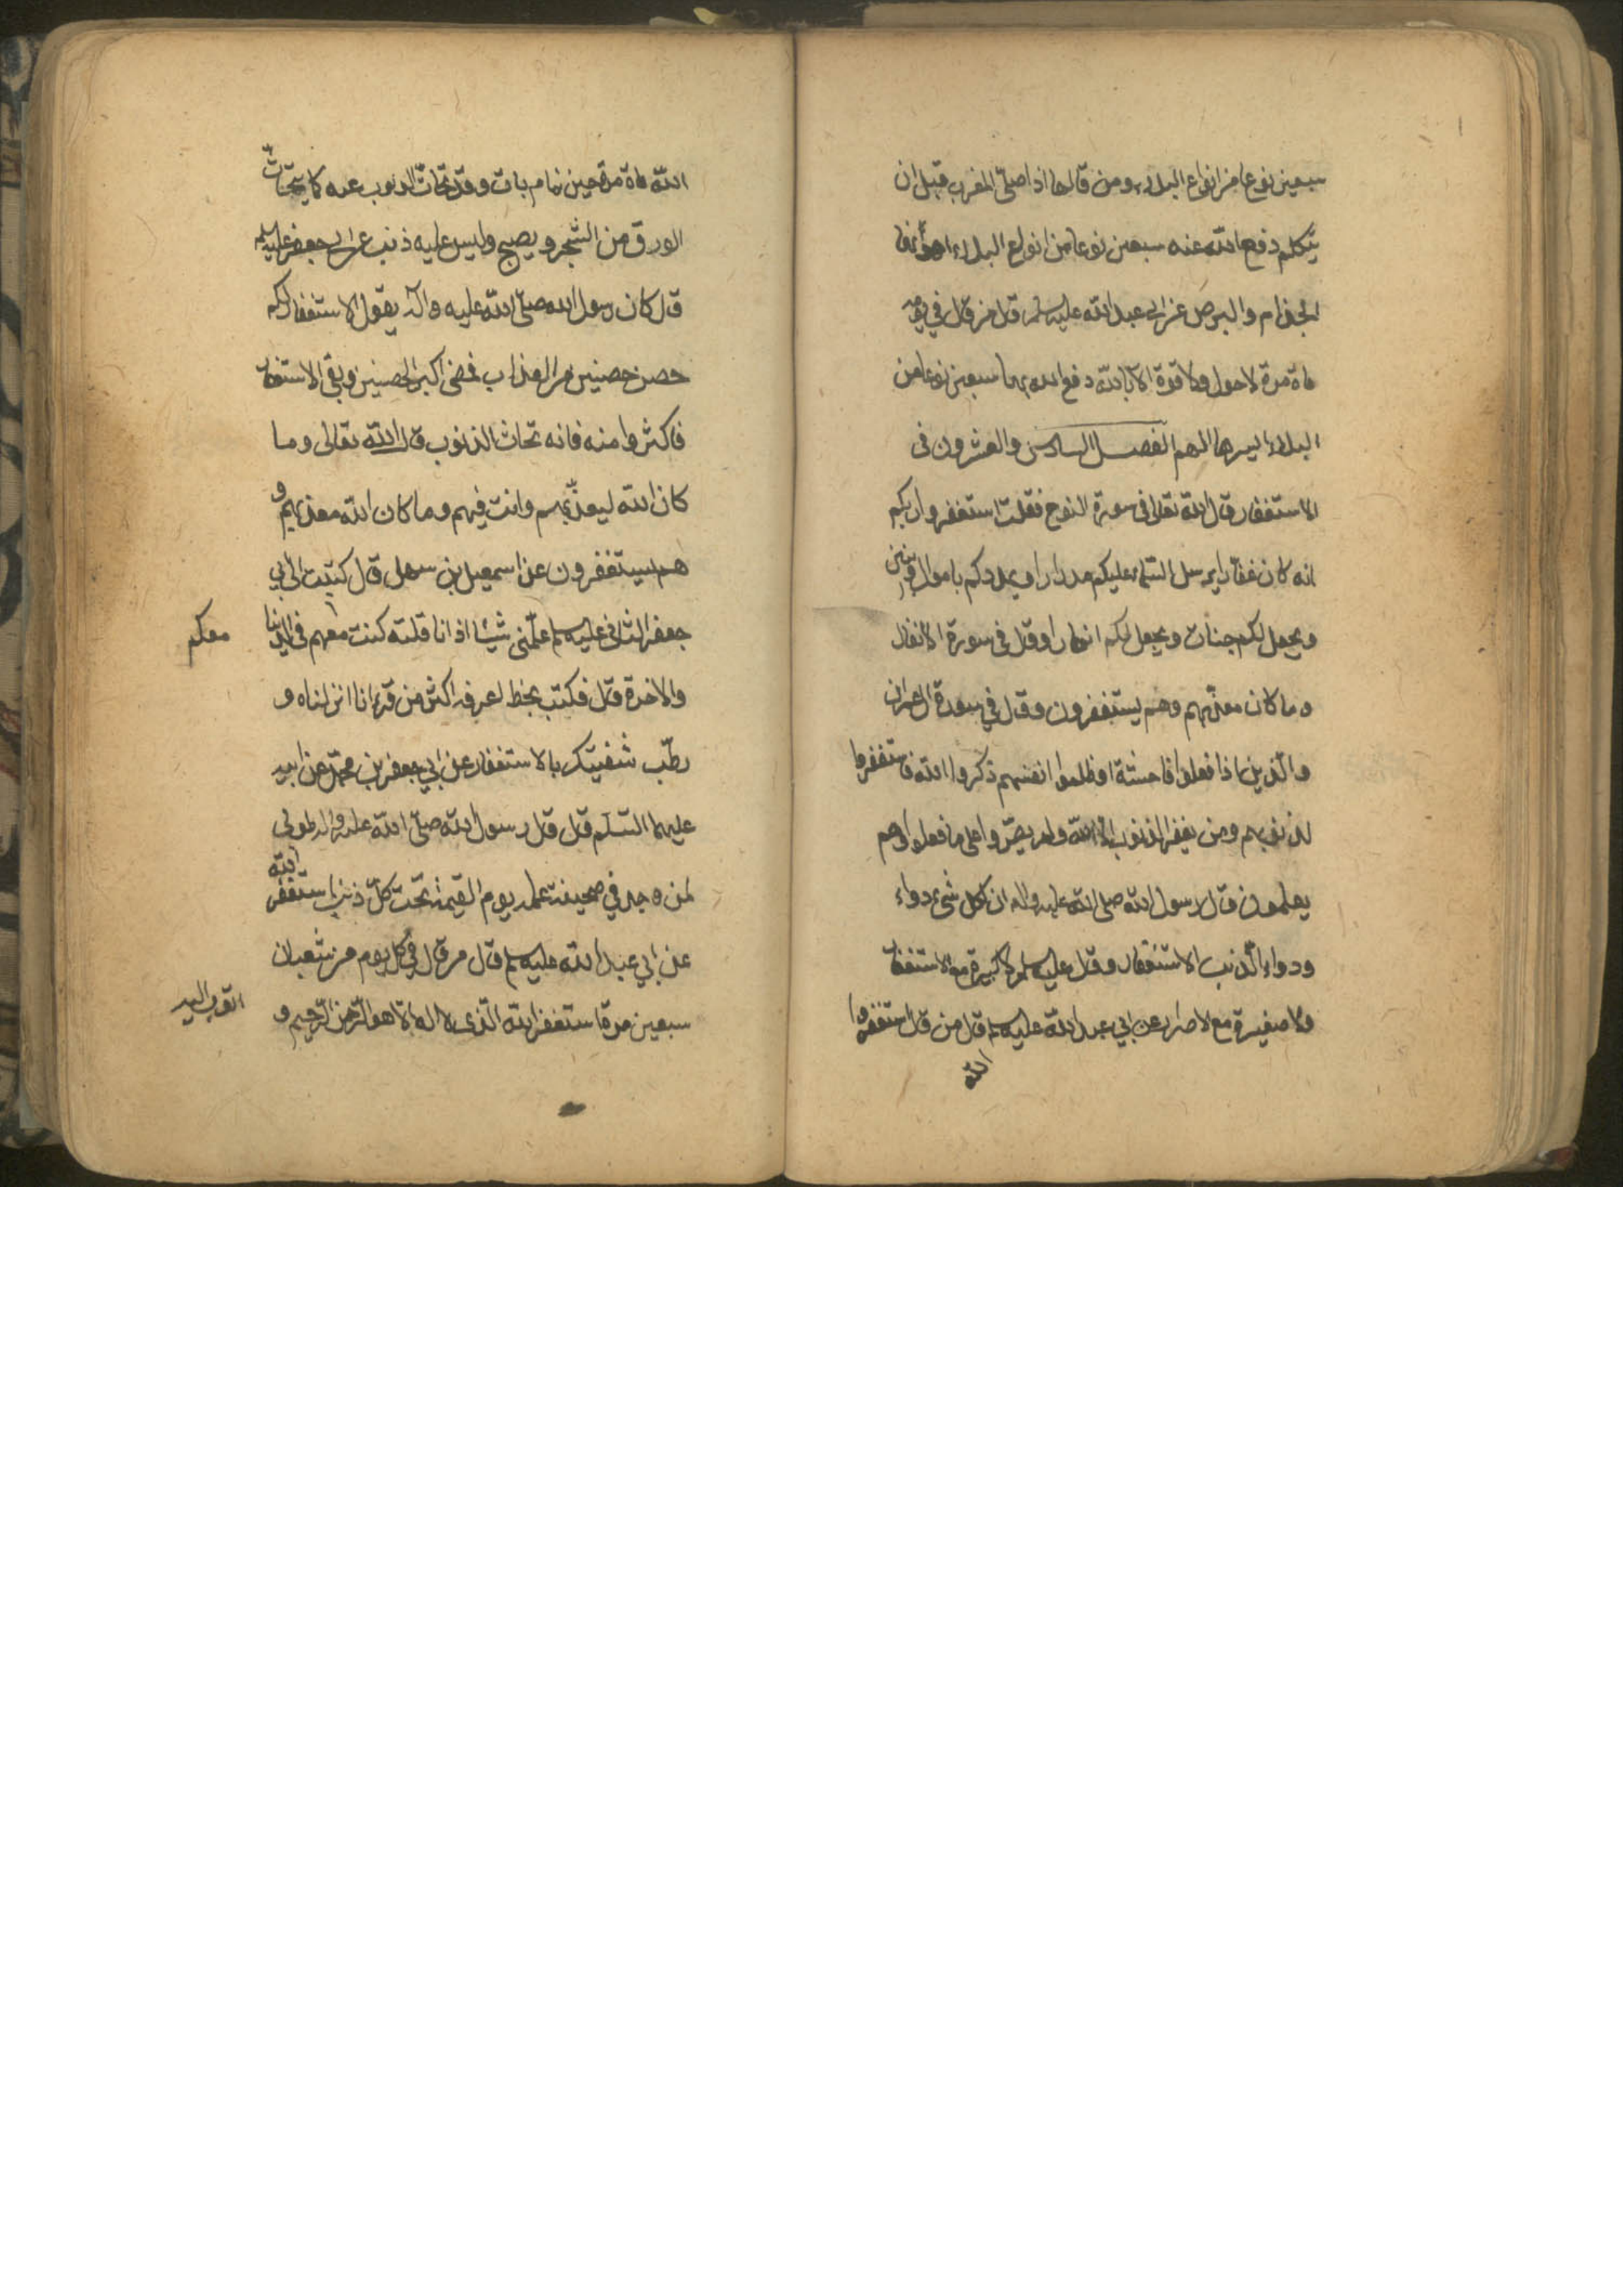 سبعين نوعا من انواع البلاء ومن قالها اذا صلى المغرب قبل ان
يتكلم دفع الله عنه سبعين نوعا من انواع البلاء اهونها
الجذام والبرص عن ابى عبد الله عليه السلم قال من قال في يومه
ماة مرة لا حول ولا قوة الا بالله دفع الله بها سبعين نوعا من
البلاء ايسرها الهم الفصل السادس والعشرون فى
الاستغفار قال الله تعالى فى سورة النوح فقلت استغفروا ربكم
انه كان غفارا يرسل السماء عليكم مدرارا ويمددكم باموال وبنين
ويجعل لكم جنات ويجعل لكم انهارا وقال فى سورة الانفال
وما كان معذبهم وهم يستغفرون وقال في سورة ال عمران
والذين اذا فعلوا فاحشة او ظلموا انفسهم ذكروا الله فاستغفروا
لذنوبهم ومن يغفر الذنوب الا الله ولم يصروا على ما فعلوا وهم
يعلمون قال رسول الله صلى الله عليه واله ان لكل شىء دواء
ودواء الذنب الاستغفار وقال عليه السلم لا كبيرة مع الاستغفار
ولا صغيرة مع الاصرار عن ابي عبد الله عليه السلم قال من قال استغفروا
الله
الله ماة مرة حين ينام بات وقد تحات الذنوب عنه كما يتحات
الورق من الشجر ويصبح وليس عليه ذنب عن ابى جعفر عليه السلم
قال كان رسول الله صلى الله عليه واله يقول الاستغفار لكم
حصن حصنين من العذاب فمضى اكبر الحصنين وبقى الاستغفار
فاكثروا منه فانه تحاث الذنوب قال الله تعالى وما
كان الله ليعذبهم وانت فيهم وما كان الله معذبهم و
هم يستغفرون عن اسمعيل بن سهل قال كتبت الى ابي
جعفر الثانى عليه السلم علمنى شيئا اذا انا قلته كنت معهم فى الدنيا
معكم
والاخرة قال فكتب بخط اعرفه اكثر من قراءة انا انزلناه و
رطب شفيتك بالاستغفار عن ابي جعفر بن محمد عن ابيه
عليهما السلم قال قال رسول الله صلى الله عليه واله طوبى
لمن وجد في صحيفة عمله يوم القيمة تحت كل ذنب استغفر الله
عن ابي عبد الله عليه السلم قال من قال في كل يوم من شعبان
سبعين مرة استغفر الله الذى لا اله الا هو الرحمن الرحيم و
اتوب اليه